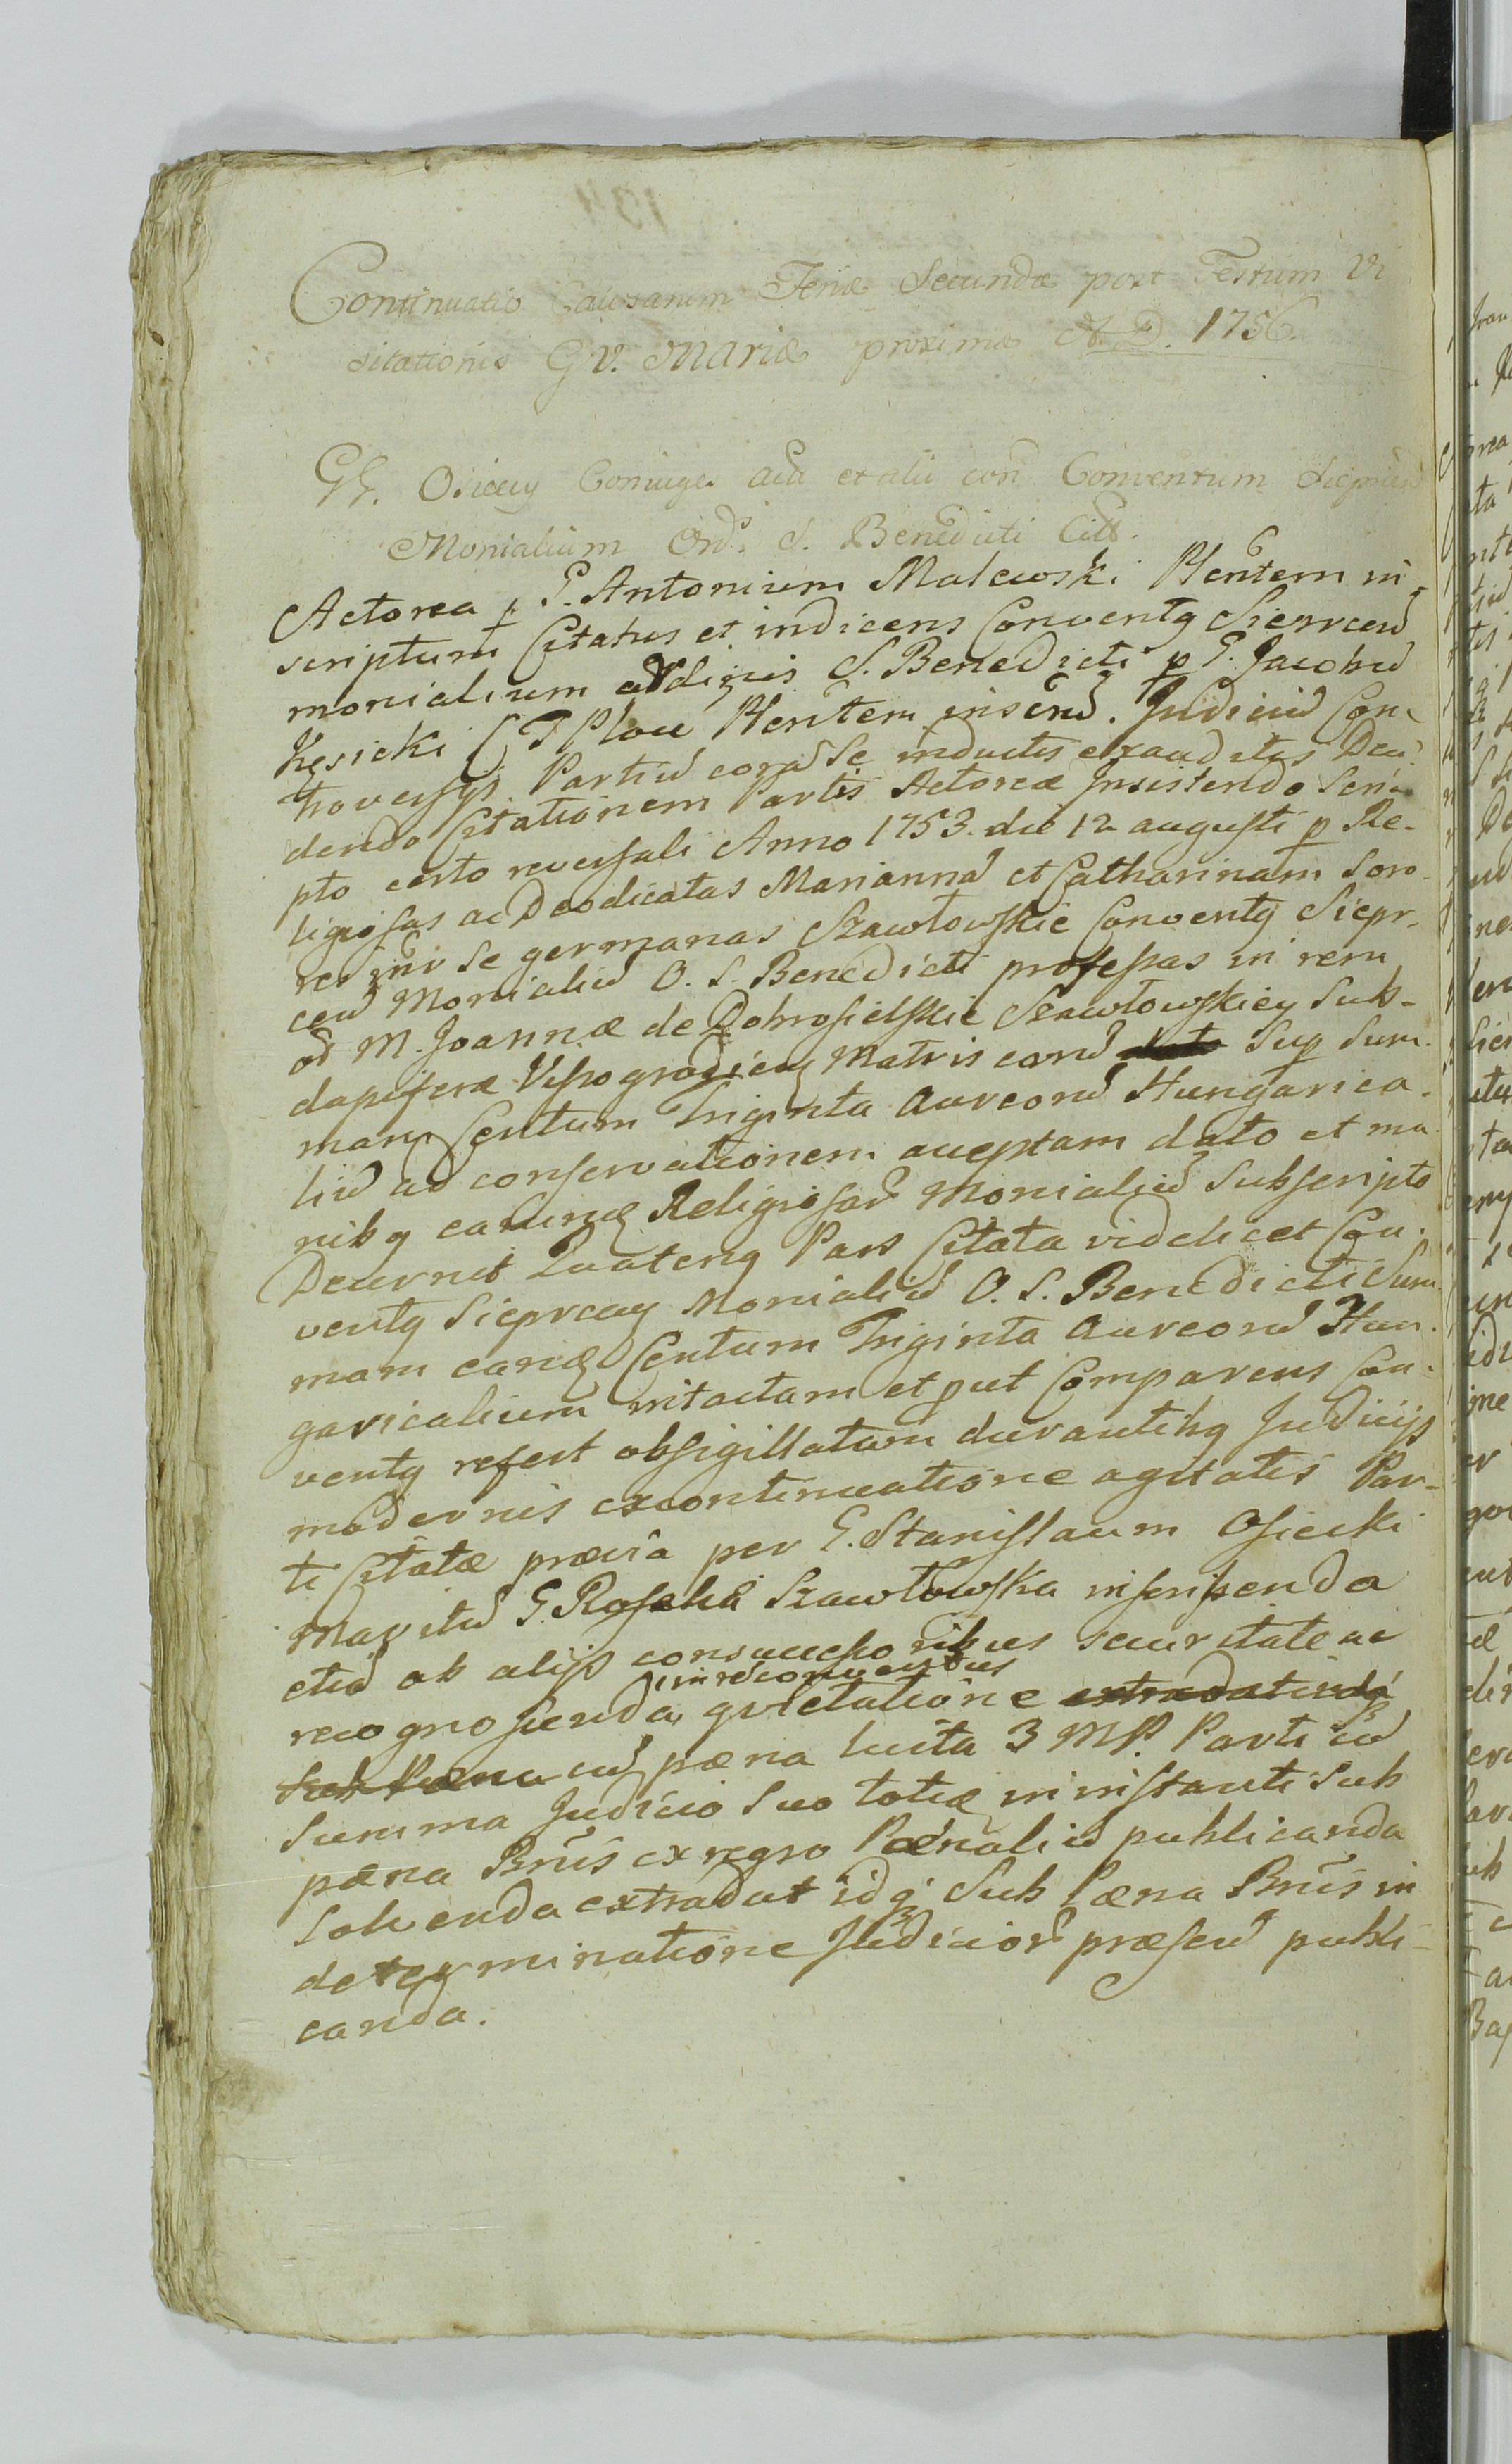 Continuatio Causarum Feriæ Secundæ post Festum Vi
sitationis G V. Mariæ proximæ A. D. 1756.
GG. Osieccy Coniuges act et alii con Conventum Sieprcen
Monialium Ord. S. Benedicti Citt.
Actorea p G. Antonium Malewski Plentem in-
scriptum Citatus et indicens Conventq Sieprcen
monialium ordinis S. Benedicti p G. Jacobu
Kęsicki C T Ploc Plentem inserw. Judiciu Con-
troversys Partiu cora Se inductis exauditis Decu
dendo Citationem Partis Actoreæ Insistendo Scri
pto certo reversali Anno 1753. die 12 augusti p Re-
ligiosas ac Deodicatas Mariannā et Catharinam Soro
res inv Se germanas Szawłowskie Conventq Siepr-
cen Monialiu O. S. Benedicti professas in rem
od M. Joannæ de Dobrosielskie Szawłowskiey Sub-
dapiferæ Vyssogrodiey Matris earu Sup Sum.
mam Centum Triginta Aureoru Hungarica.
liu ad conservationem acceptam dato et ma
nibq earumq Religiosar Monialiu Subscripto
Decernit Quatenq Pars Citata videlicet Con.
ventq Sieprcay Monialiu O. S. Benedicti Sum
mam eanq Centum Triginta Aureoru Hun.
garicalium intactam et put Comparens Con-
ventq refert obsigillatam durantibq Judicijs
modernis ex continuatione agitatis Par-
ti Citatæ prævia per G. Stanislaum Osiecki
Maritu G. Rosalia Szawłowska inscribenda
etia ab alijs consuccessoribus securitate ac
recognoscenda quietatione extradatinda
Sub Pæna cu pæna luita 3 MP. Parti cu
Summa Judicio Suo toties in instanti Sub
pæna Bnis ex regno Pænaliu publicanda
Solvenda extradat idq Sub Pæna Bnis in
determinatione Judicior præsen publi-
canda.